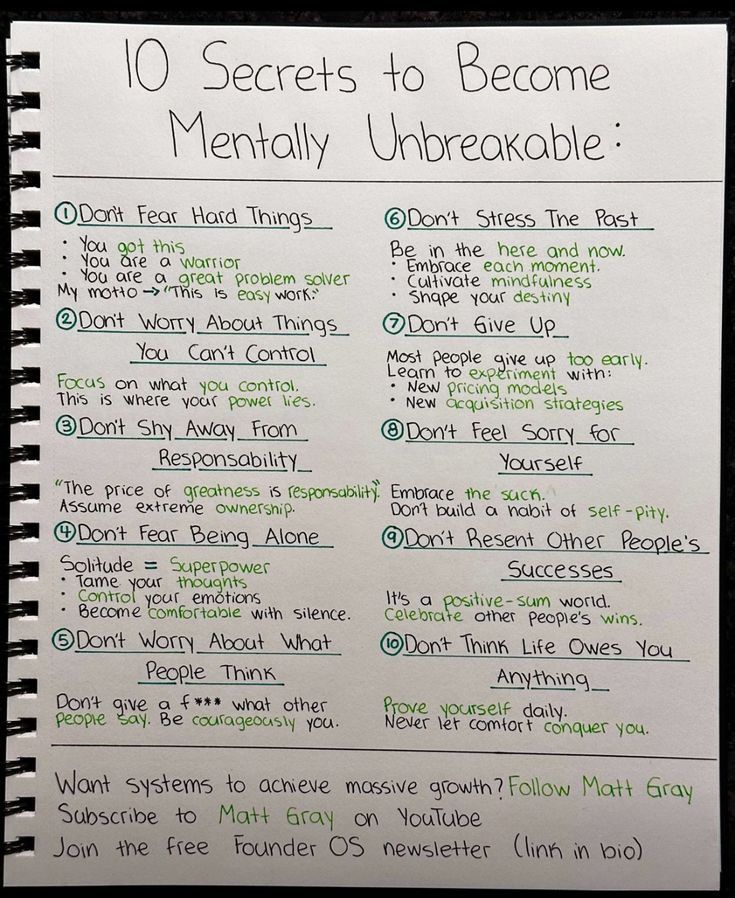 10 Secrets to Become
Mentally Unbreakable:
① Don't Fear Hard Things
• You got this
• You are a warrior
• You are a great problem solver
My motto → "This is easy work."
② Don't Worry About Things
You Can't Control
Focus on what you control.
This is where your power lies.
③ Don't Shy Away From
Responsability
"The price of greatness is responsability."
Assume extreme ownership.
④ Don't Fear Being Alone
Solitude = Superpower
• Tame your thoughts
• Control your emotions
• Become comfortable with silence.
⑤ Don't Worry About What
People Think
Don't give a f*** what other
people say. Be courageously you.
⑥ Don't Stress The Past
Be in the here and now.
• Embrace each moment.
• Cultivate mindfulness
• Shape your destiny
⑦ Don't Give Up
Most people give up too early.
Learn to experiment with:
• New pricing models
• New acquisition strategies
⑧ Don't Feel Sorry for
Yourself
Embrace the suck.
Don't build a habit of self-pity.
⑨ Don't Resent Other People's
Successes
It's a positive-sum world.
Celebrate other people's wins.
⑩ Don't Think Life Owes You
Anything
Prove yourself daily.
Never let comfort conquer you.
Want systems to achieve massive growth? Follow Matt Gray
Subscribe to Matt Gray on YouTube
Join the free Founder OS newsletter (link in bio)